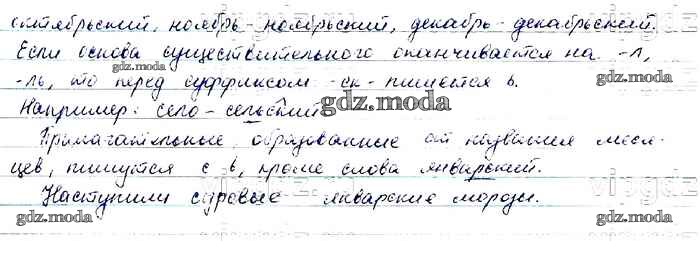 октябрьский, ноябрь - ноябрьский, декабрь - декабрьский.
Если основа существительного оканчивается на -л,
-ль, то перед суффиксом -ск- пишется ь.
Например: село - сельский
Прилагательные, образованные от названия меся-
цев, пишутся с ь, кроме слова январский.
Наступили суровые январские морозы.
gdz.moda
gdz.moda
gdz.moda
gdz.moda
gdz.moda
gdz.moda
vipgdz